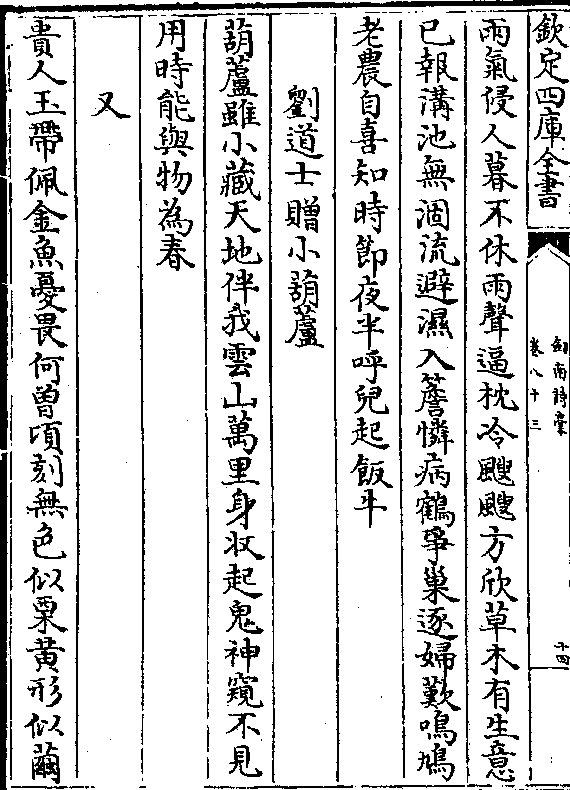 欽定四庫全書
劍南詩稾
卷八十三
十四
雨氣侵人暮不休雨聲逼枕冷颼颼方欣草木有生意
已報溝池無涸流避濕入簷憐病鶴爭巢逐婦歎鳴鳩
老農自喜知時節夜半呼兒起飯牛
劉道士贈小葫蘆
葫蘆雖小藏天地伴我雲山萬里身收起鬼神窺不見
用時能與物為春
又
貴人玉帶佩金魚憂畏何曾頃刻無色似栗黄形似繭